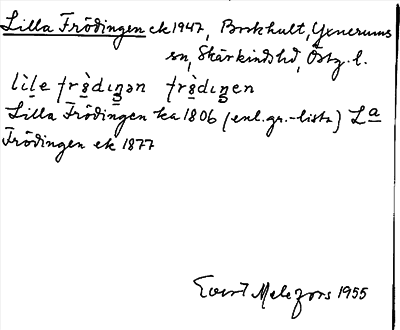 Lilla Frödingen ek 1947, Borkhult, Yxnerums
sn, Skärkinds hd, Östg. l.
Lilla Frödingen ka 1806 (enl. gr.-lista) La
Frödingen ek 1877
Evert Melefors 1955